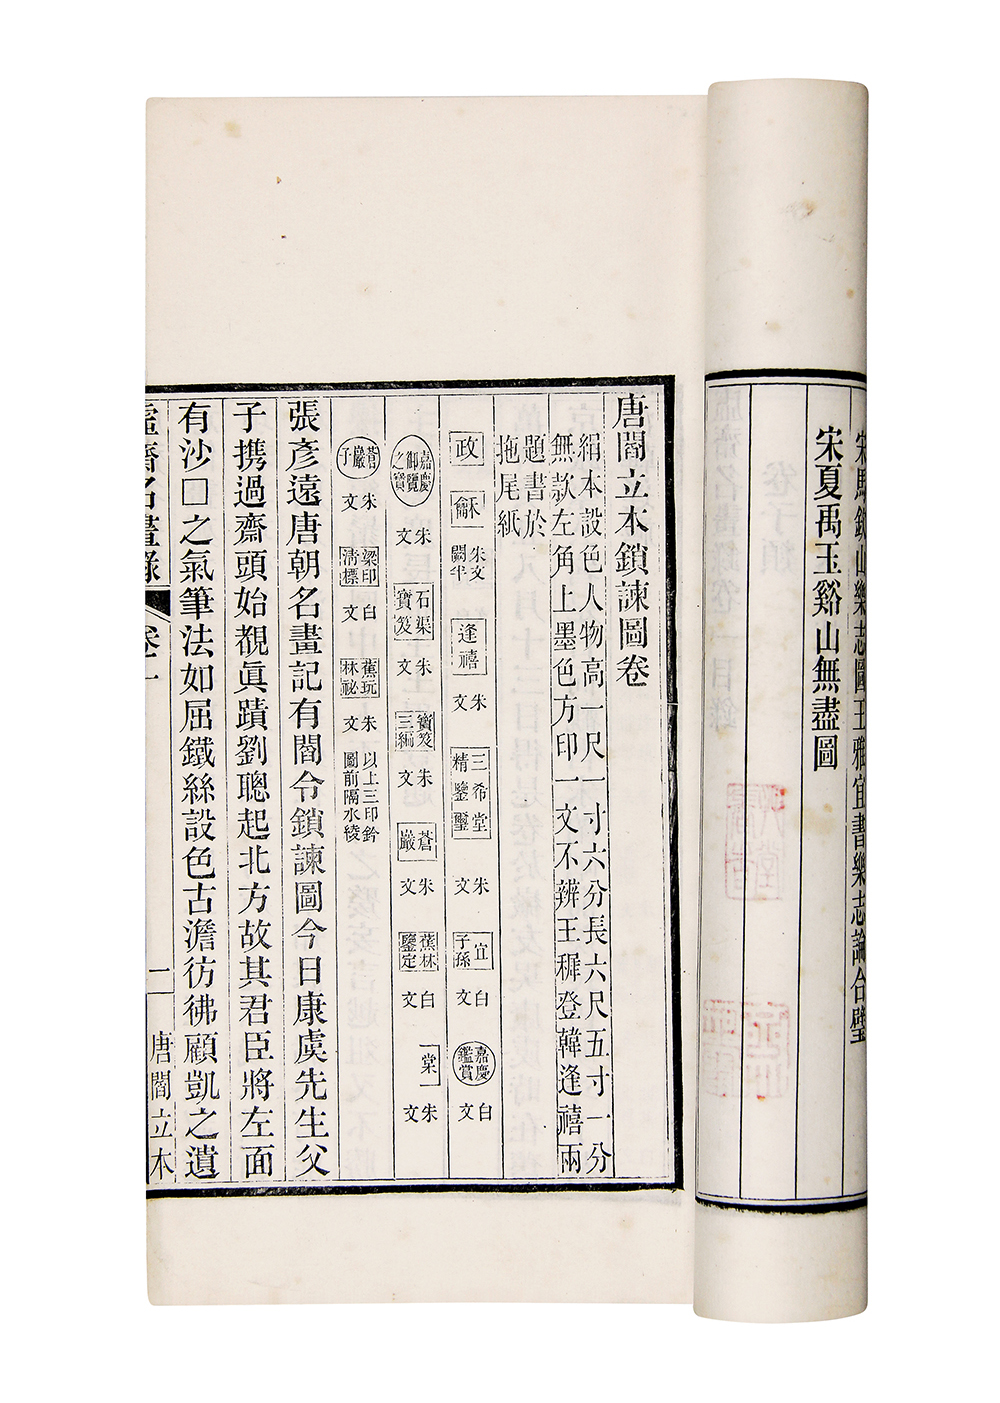 宋馬欽山樂志圖王雅宜書樂志論合璧
宋夏禹玉谿山無盡圖
唐閻立本鎖諫圖卷
絹本設色人物高一尺一寸六分長六尺五寸一分
無款左角上墨色方印一文不辨王穉登韓逢禧兩
題書於
拖尾紙
政 龢 朱文闕半 逢禧 朱文 三希堂精鑒璽 朱文 宜子孫 白文 嘉慶鑑賞 白文
嘉慶御覽之寶 朱文 石渠寶笈 朱文 寶笈三編 朱文 蒼巖 朱文 蕉林鑒定 白文 棠 朱文
蒼巖子 朱文 梁清標印 白文 蕉林玩祕 朱文 以上三印鈐圖前隔水綾
張彥遠唐朝名畫記有閻令鎖諫圖今日康虞先生父
子携過齋頭始覩眞蹟劉聰起北方故其君臣將左面
有沙□之氣筆法如屈鐵絲設色古澹彷彿顧凱之遺
虛齋名畫錄 卷一 一 唐閻立本